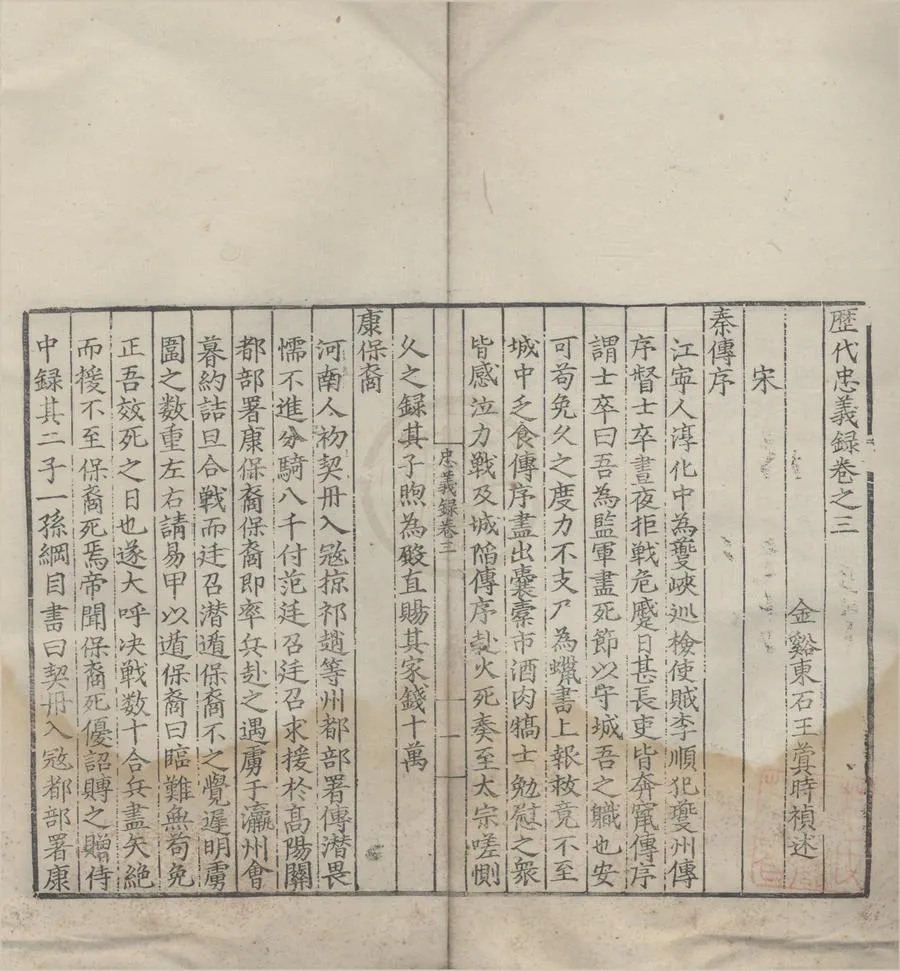 歷代忠義録卷之三
金谿東石王蓂時禎述
宋
秦傳序
江寕人淳化中為夔峽巡檢使賊李順犯夔州傳
序督士卒晝夜拒戰危蹙日甚長吏皆奔竄傳序
謂士卒曰吾為監軍盡死節以守城吾之職也安
可苟免久之度力不支尸為蠟書上報救竟不至
城中乏食傳序盡出囊橐市酒肉犒士勉慰之衆
皆感泣力戰及城陥傳序赴火死奏至太宗嗟惻
忠義録卷三
一
久之録其子煦為殿直賜其家錢十萬
康保裔
河南人初契丹入冦掠祁趙等州都部署傳潜畏
懦不進分騎八千付范廷召廷召求援於高陽關
都部署康保裔保裔即率兵赴之遇虜于瀛州會
暮約詰旦合戰而廷召潜遁保裔不之覺遲明虜
圍之数重左右請易甲以遁保裔曰臨難無苟免
正吾效死之日也遂大呼决戰数十合兵盡矢絶
而援不至保裔死焉帝聞保裔死優詔賻之贈侍
中録其二子一孫綱目書曰契丹入冦都部署康